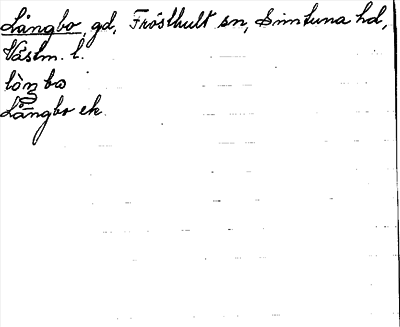 Långbo, gd, Frösthult sn, Simtuna hd,
Västm. l.
lòŋbo
Långbo ek